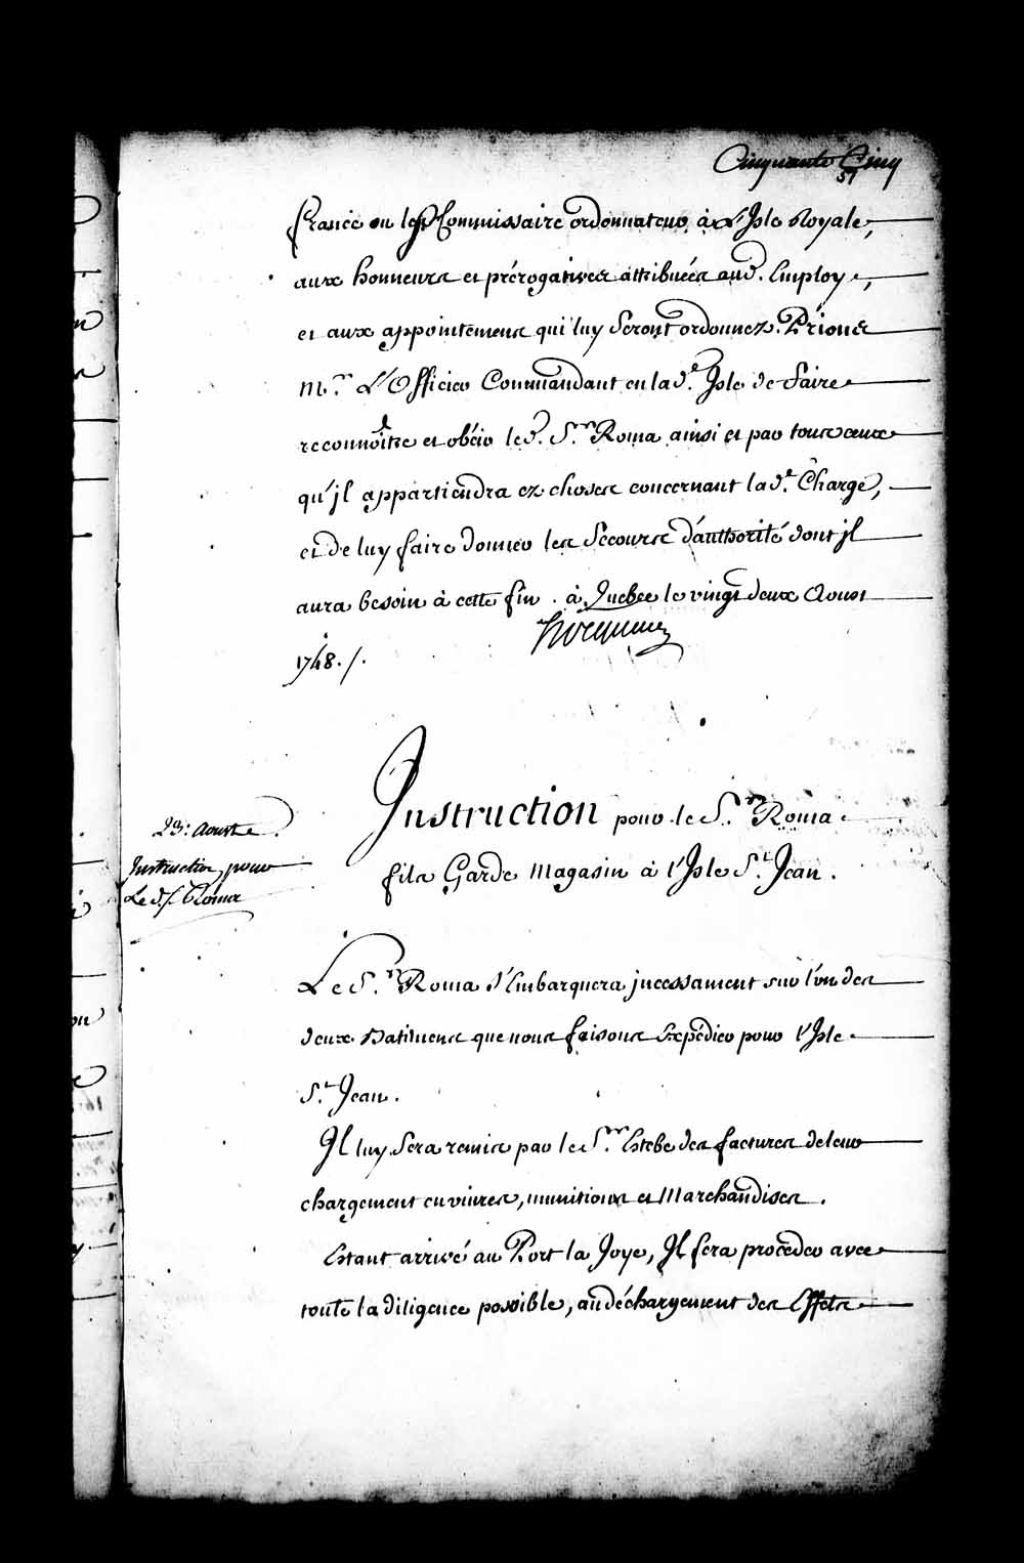 Cinquante Cinq
51
france ou le Sr. Commissaire ordonnateur à L'Isle Royale,
aux honneurs et prérogatives attribuées aud. Employ,
et aux appointemens qui luy seront ordonnez. Prions
Mr. L'Officier Commandant en lad.e Isle de faire
reconnoître et obéir led. S.r Roma ainsi et par tous ceux
qu'jl appartiendra ez choses concernant lad.e Charge,
et de luy faire donner les secours d'authorité dont jl
aura besoin à cette fin. à Quebec le vingt deux Aoust
1748./.
hocquart
23: Aoust
Instruction pour
Le d. S. Roma
Instruction pour le S.r Roma
fils Garde Magasin à l'Isle S.t Jean.
Le S.r Roma s'Embarquera jncessament sur l'un des
deux Batimens que nous faisons Expédier pour l'Isle
S.t Jean.
Il luy sera remis par le S.r Estebe des factures de leur
chargement en vivres, munitions et Marchandises.
Estant arrivé au Port la Joye, Il fera proceder avec
toute la diligence possible, au déchargement des Effets